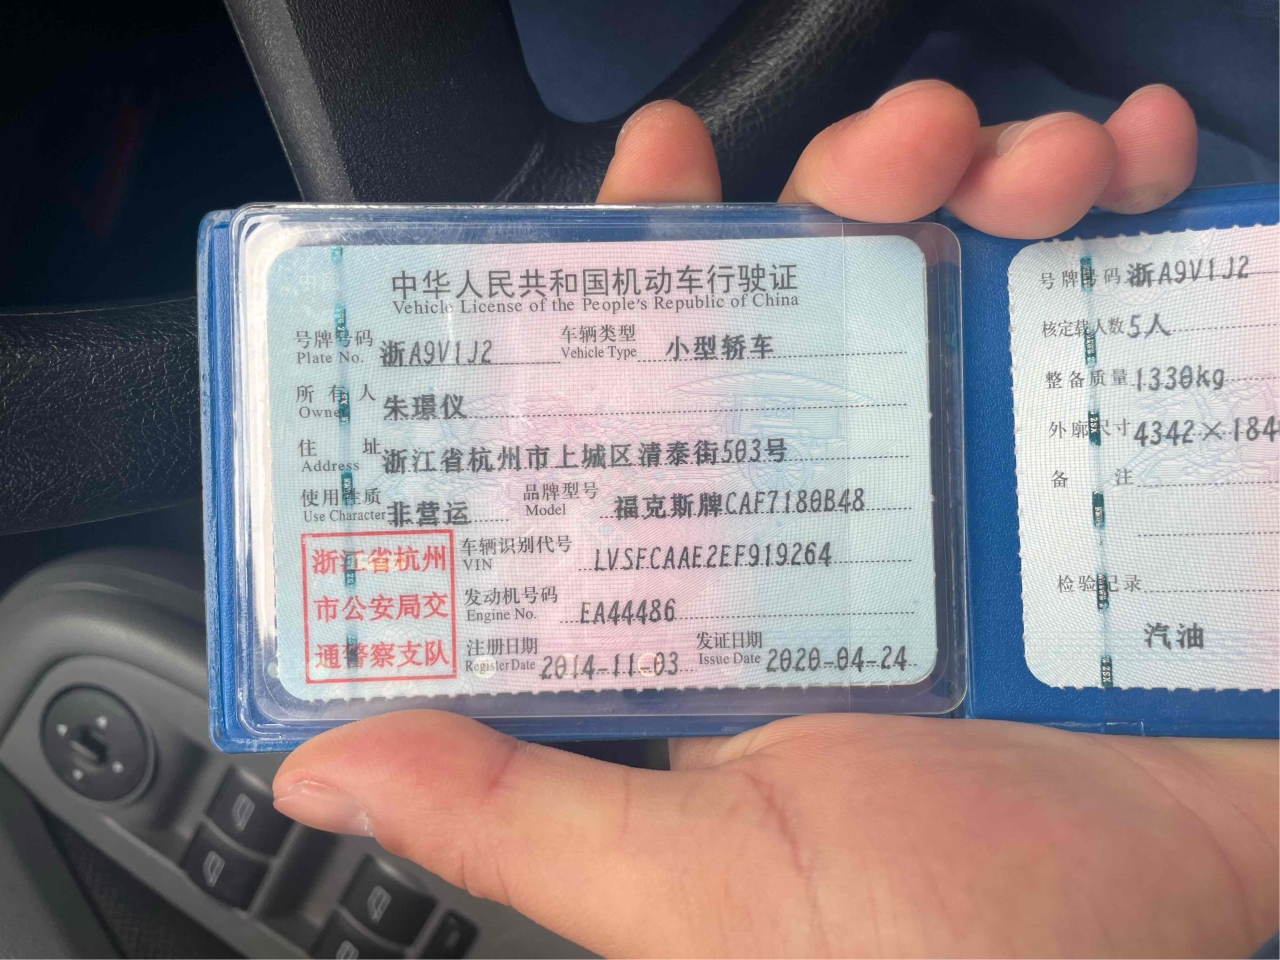 中华人民共和国机动车行驶证
Vehicle License of the People's Republic of China
号牌号码 浙A9V1J2 车辆类型 小型轿车
Plate No. Vehicle Type
所有人 朱璟仪
Owner
住址 浙江省杭州市上城区清泰街503号
Address
使用性质 非营运 品牌型号 福克斯牌CAF7180B48
Use Character Model
浙江省杭州
市公安局交
通警察支队
车辆识别代号 LVSFCAAE2EF919264
VIN
发动机号码 EA44486
Engine No.
注册日期 2014-11-03 发证日期 2020-04-24
Register Date Issue Date
号牌号码 浙A9V1J2
核定载人数 5人
整备质量 1330kg
外廓尺寸 4342×184
备注
检验记录
汽油